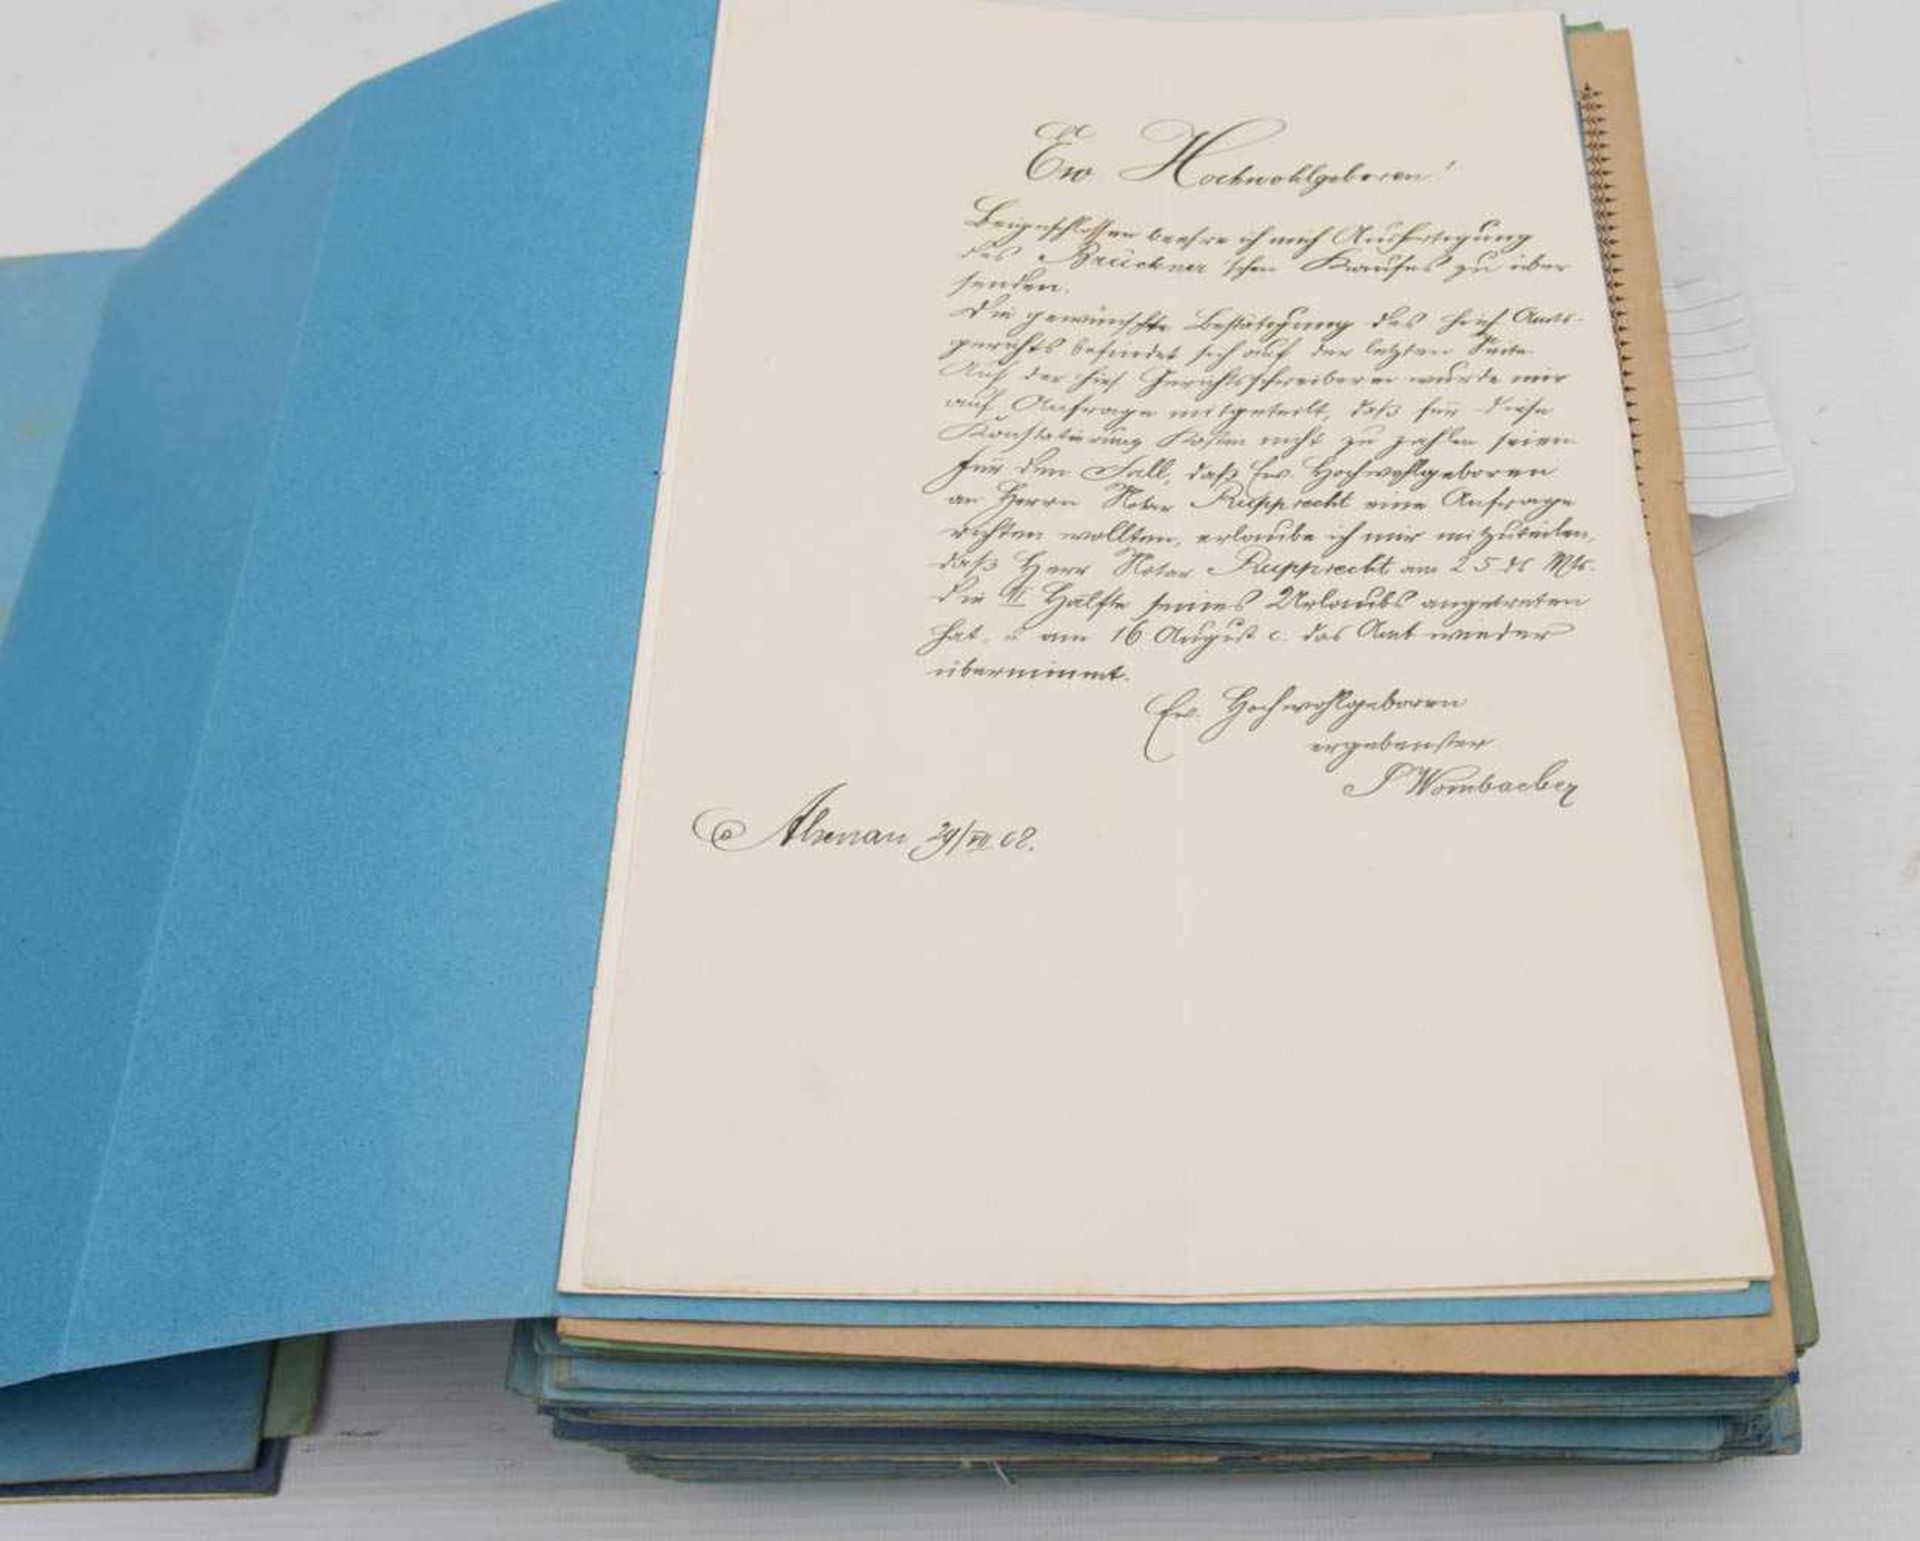 Ew. Hochwohlgeboren!
Beigeschlossen beehre ich mich Ausfertigung
des Brückner'schen Kaufes zu über
senden.
Die gewünschte Bestätigung des hies. Amts-
gerichts befindet sich auf der letzten Seite.
Auf der hies. Gerichtsschreiberei wurde mir
auf Anfrage mitgeteilt, daß für diese
Konstatierung Kosten nicht zu zahlen seien.
Für den Fall, daß Ew. Hochwohlgeboren
an Herrn Notar Rupprecht eine Anfrage
richten wollten, erlaube ich mir mitzuteilen,
daß Herr Notar Rupprecht am 25 ds Mts.
die II Hälfte seines Urlaubs angetreten
hat u. am 16 August c. das Amt wieder
übernimmt.
Ew. Hochwohlgeboren
ergebenster
Wombacher
Alzenau 29/VII 08.